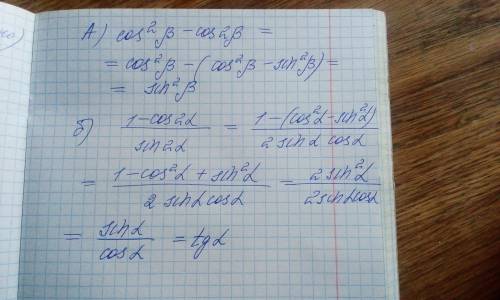 А) cos²β - cos2β =
= cos²β - (cos²β - sin²β) =
= sin²β
Б) (1-cos2α)/(sin2α) = (1-(cos²α-sin²α))/(2 sinα cosα)
= (1-cos²α + sin²α)/(2 sinα cosα) = (2 sin²α)/(2 sinα cosα)
= sinα/cosα = tgα